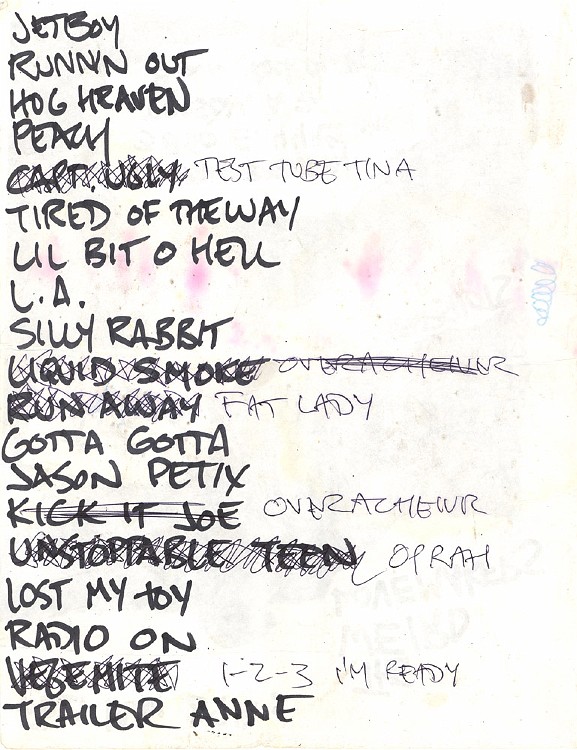 JETBOY
RUNNN OUT
HOG HEAVEN
PEACH
CAPT. UGLY TEST TUBE TINA
TIRED OF THE WAY
LIL BIT O HELL
L.A.
SILLY RABBIT
LIQUID SMOKE OVERACHEIVR
RUN AWAY FAT LADY
GOTTA GOTTA
JASON PETIX
KICK IT JOE OVERACHEIVR
UNSTOPPABLE TEEN OPRAH
LOST MY TOY
RADIO ON
VEGEMITE 1-2-3 I'M READY
TRAILER ANNE